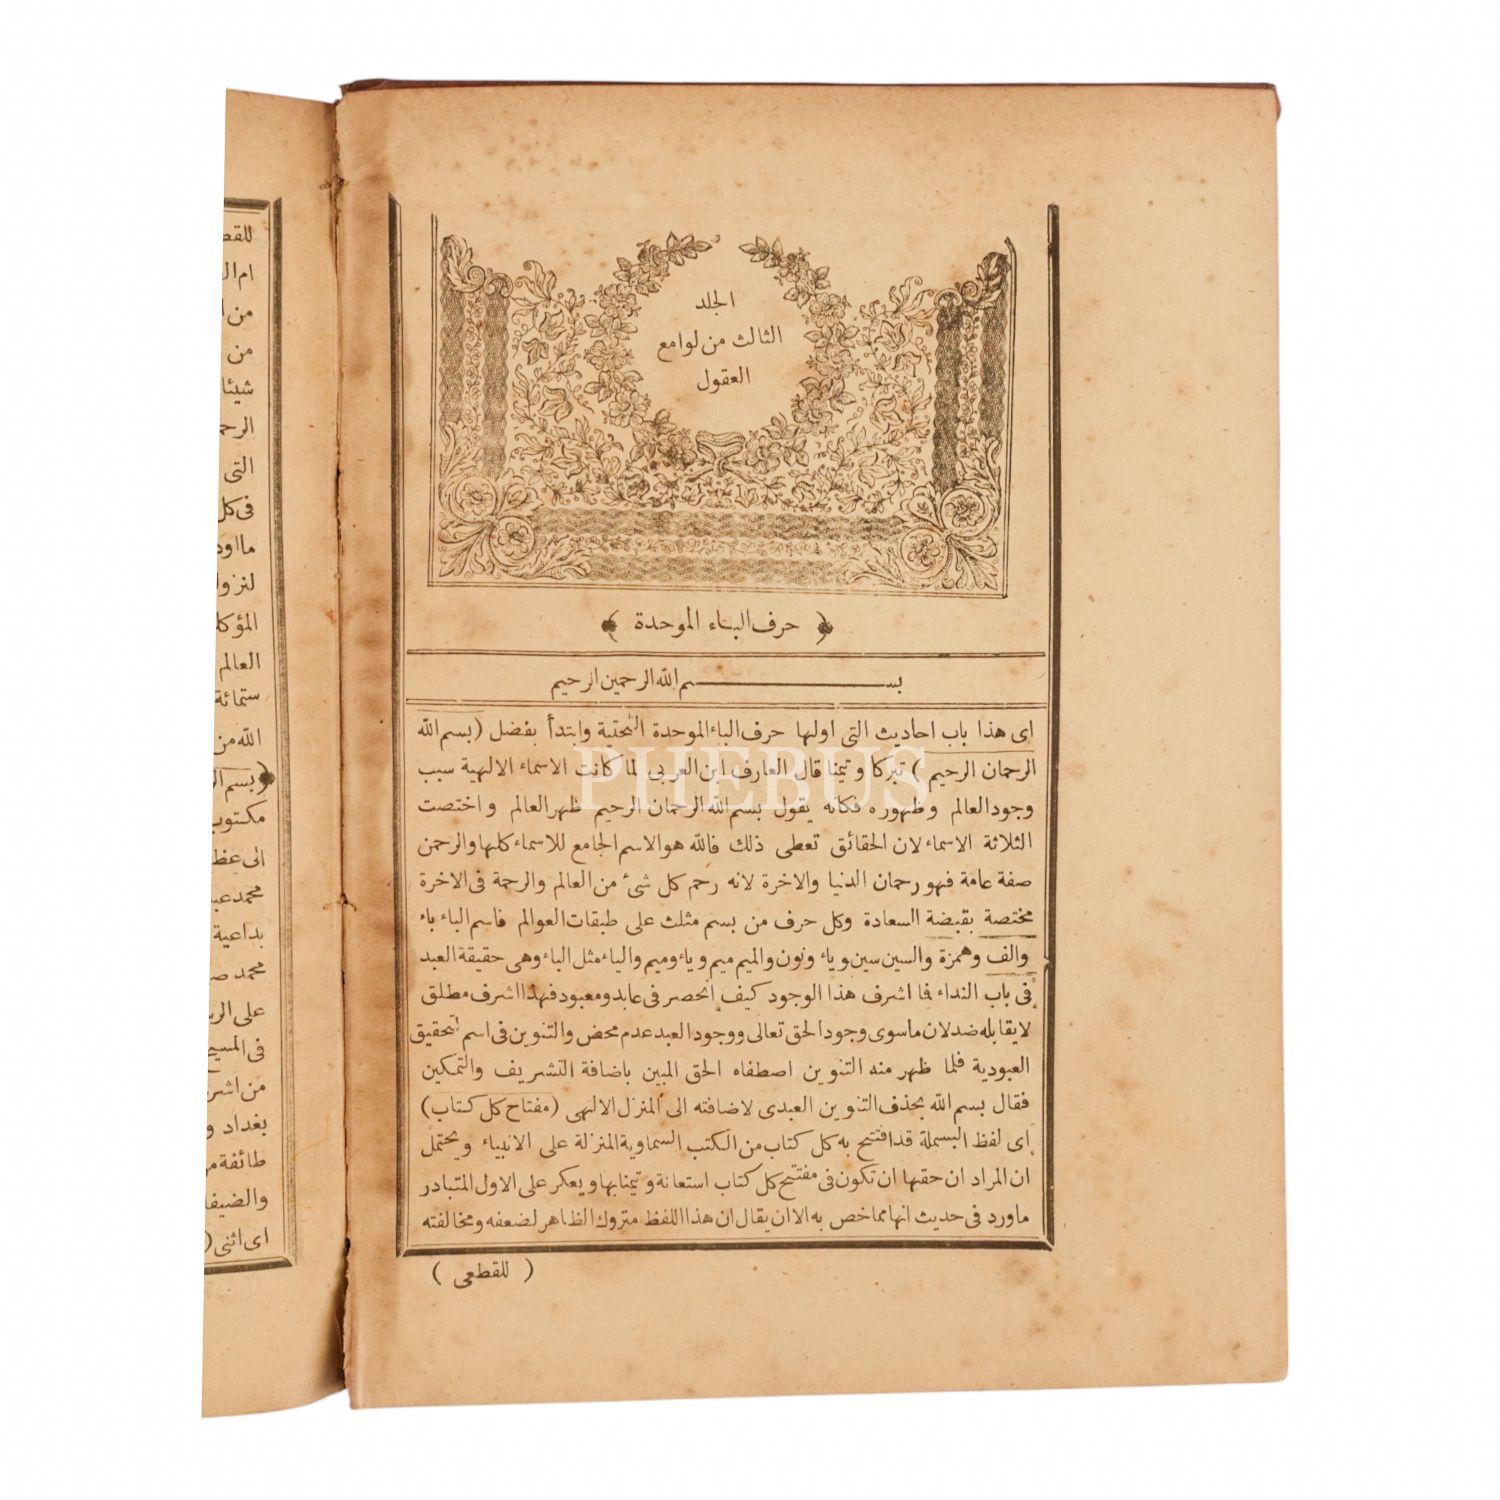 الجلد
الثالث من لوامع
العقول
﴿ حرف الباء الموحدة ﴾
بسم الله الرحمن الرحيم
اى هذا باب احاديث التى اولها حرف الباء الموحدة التحتية وابتدأ بفضل (بسم الله
الرحمان الرحيم) تبركا وتيمنا قال العارف ابن العربى لما كانت الاسماء الالهية سبب
وجود العالم وظهوره فكانه يقول بسم الله الرحمان الرحيم ظهر العالم واختصت
الثلاثة الاسماء لان الحقائق تعطى ذلك فالله هو الاسم الجامع للاسماء كلها والرحمن
صفة عامة فهو رحمان الدنيا والاخرة لانه رحم كل شئ من العالم والرحمة فى الاخرة
مختصة بقبضة السعادة وكل حرف من بسم مثلث على طبقات العوالم فاسم الباء باء
والف وهمزة والسين سين وياء ونون والميم ميم وياء وميم والياء مثل الباء وهى حقيقة العبد
فى باب النداء فما اشرف هذا الوجود كيف انحصر فى عابد ومعبود فهذا اشرف مطلق
لا يقابله ضد لان ماسوى وجود الحق تعالى ووجود العبد عدم محض والتنوين فى اسم لتحقيق
العبودية فلما ظهر منه التنوين اصطفاه الحق المبين باضافة التشريف والتمكين
فقال بسم الله بحذف التنوين العبدى لاضافته الى المنزل الالهى (مفتاح كل كتاب)
اى لفظ البسملة قد افتتح به كل كتاب من الكتب السماوية المنزلة على الانبياء ويحتمل
ان المراد ان حقها ان تكون فى مفتتح كل كتاب استعانة وتيمنا بها ويعكر على الاول المتبادر
ماورد فى حديث انها مما خص به الا ان يقال ان هذا اللفظ متروك الظاهر لضعفه ومخالفته
( للقطعى )
من
شيئا
التى
فى كل
العالم
ستمائة
الله من
مكتوب
بداعية
بغداد و
PHEBUS